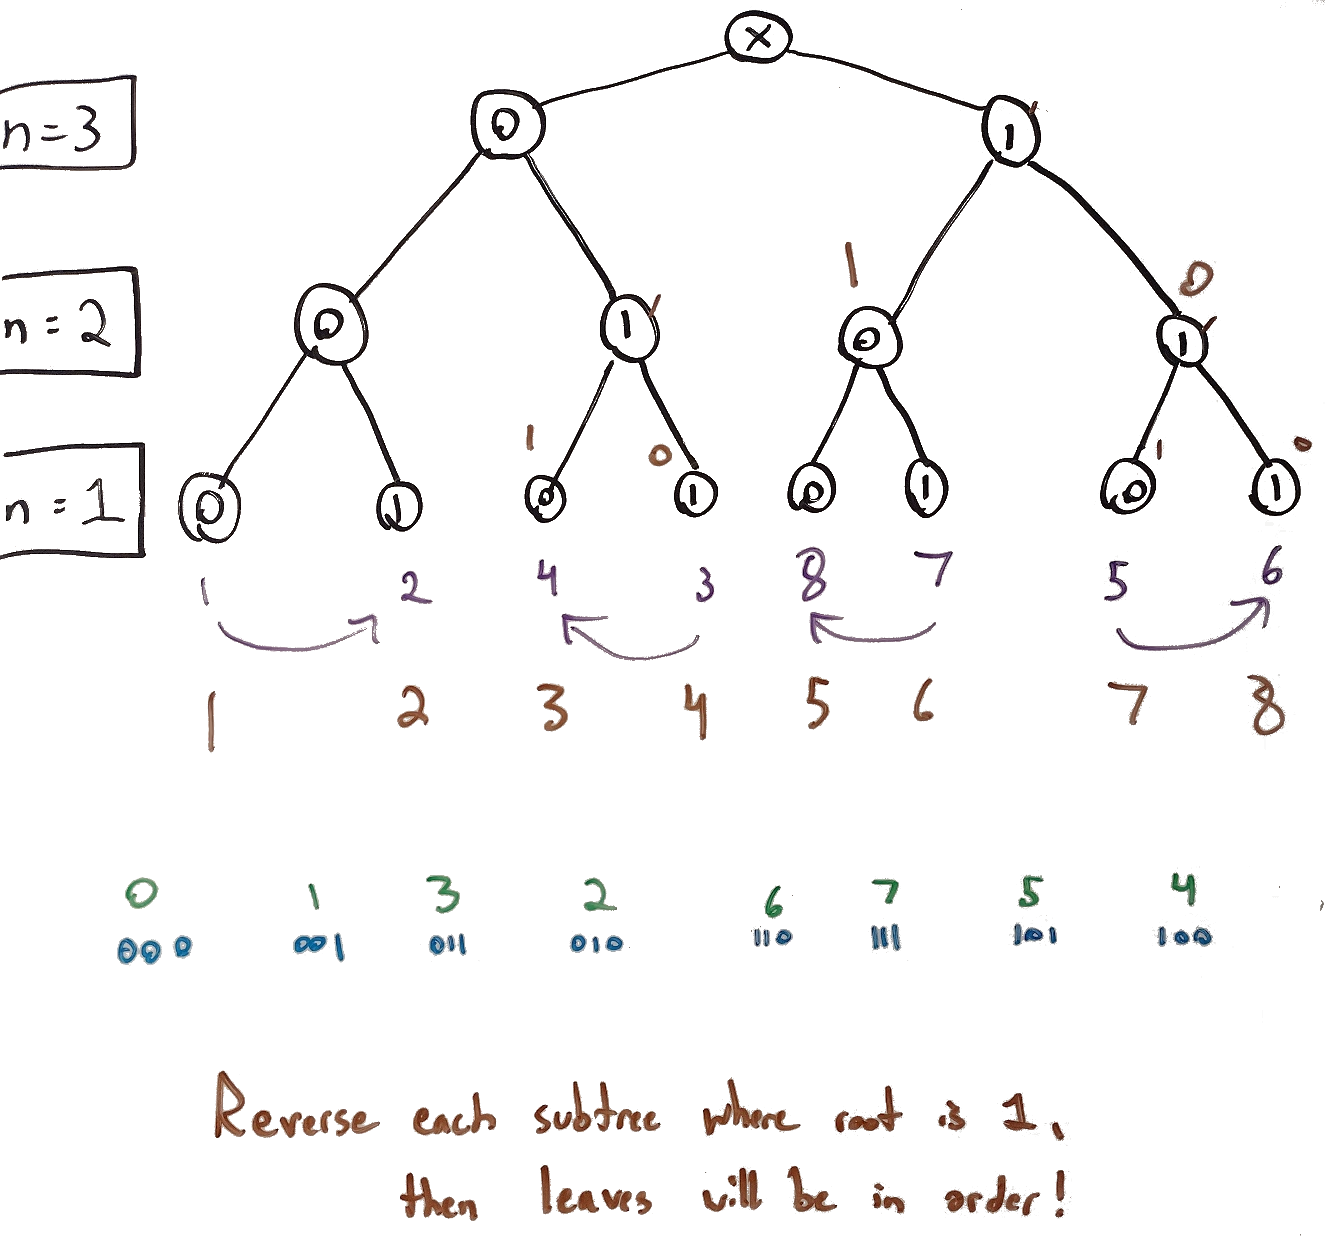 X
n=3
0 1
1 0
n=2
0 1 0 1
1 0 1 0
n=1
0 1 0 1 0 1 0 1
1 2 4 3 8 7 5 6
1 2 3 4 5 6 7 8
0 1 3 2 6 7 5 4
000 001 011 010 110 111 101 100
Reverse each subtree where root is 1,
then leaves will be in order!